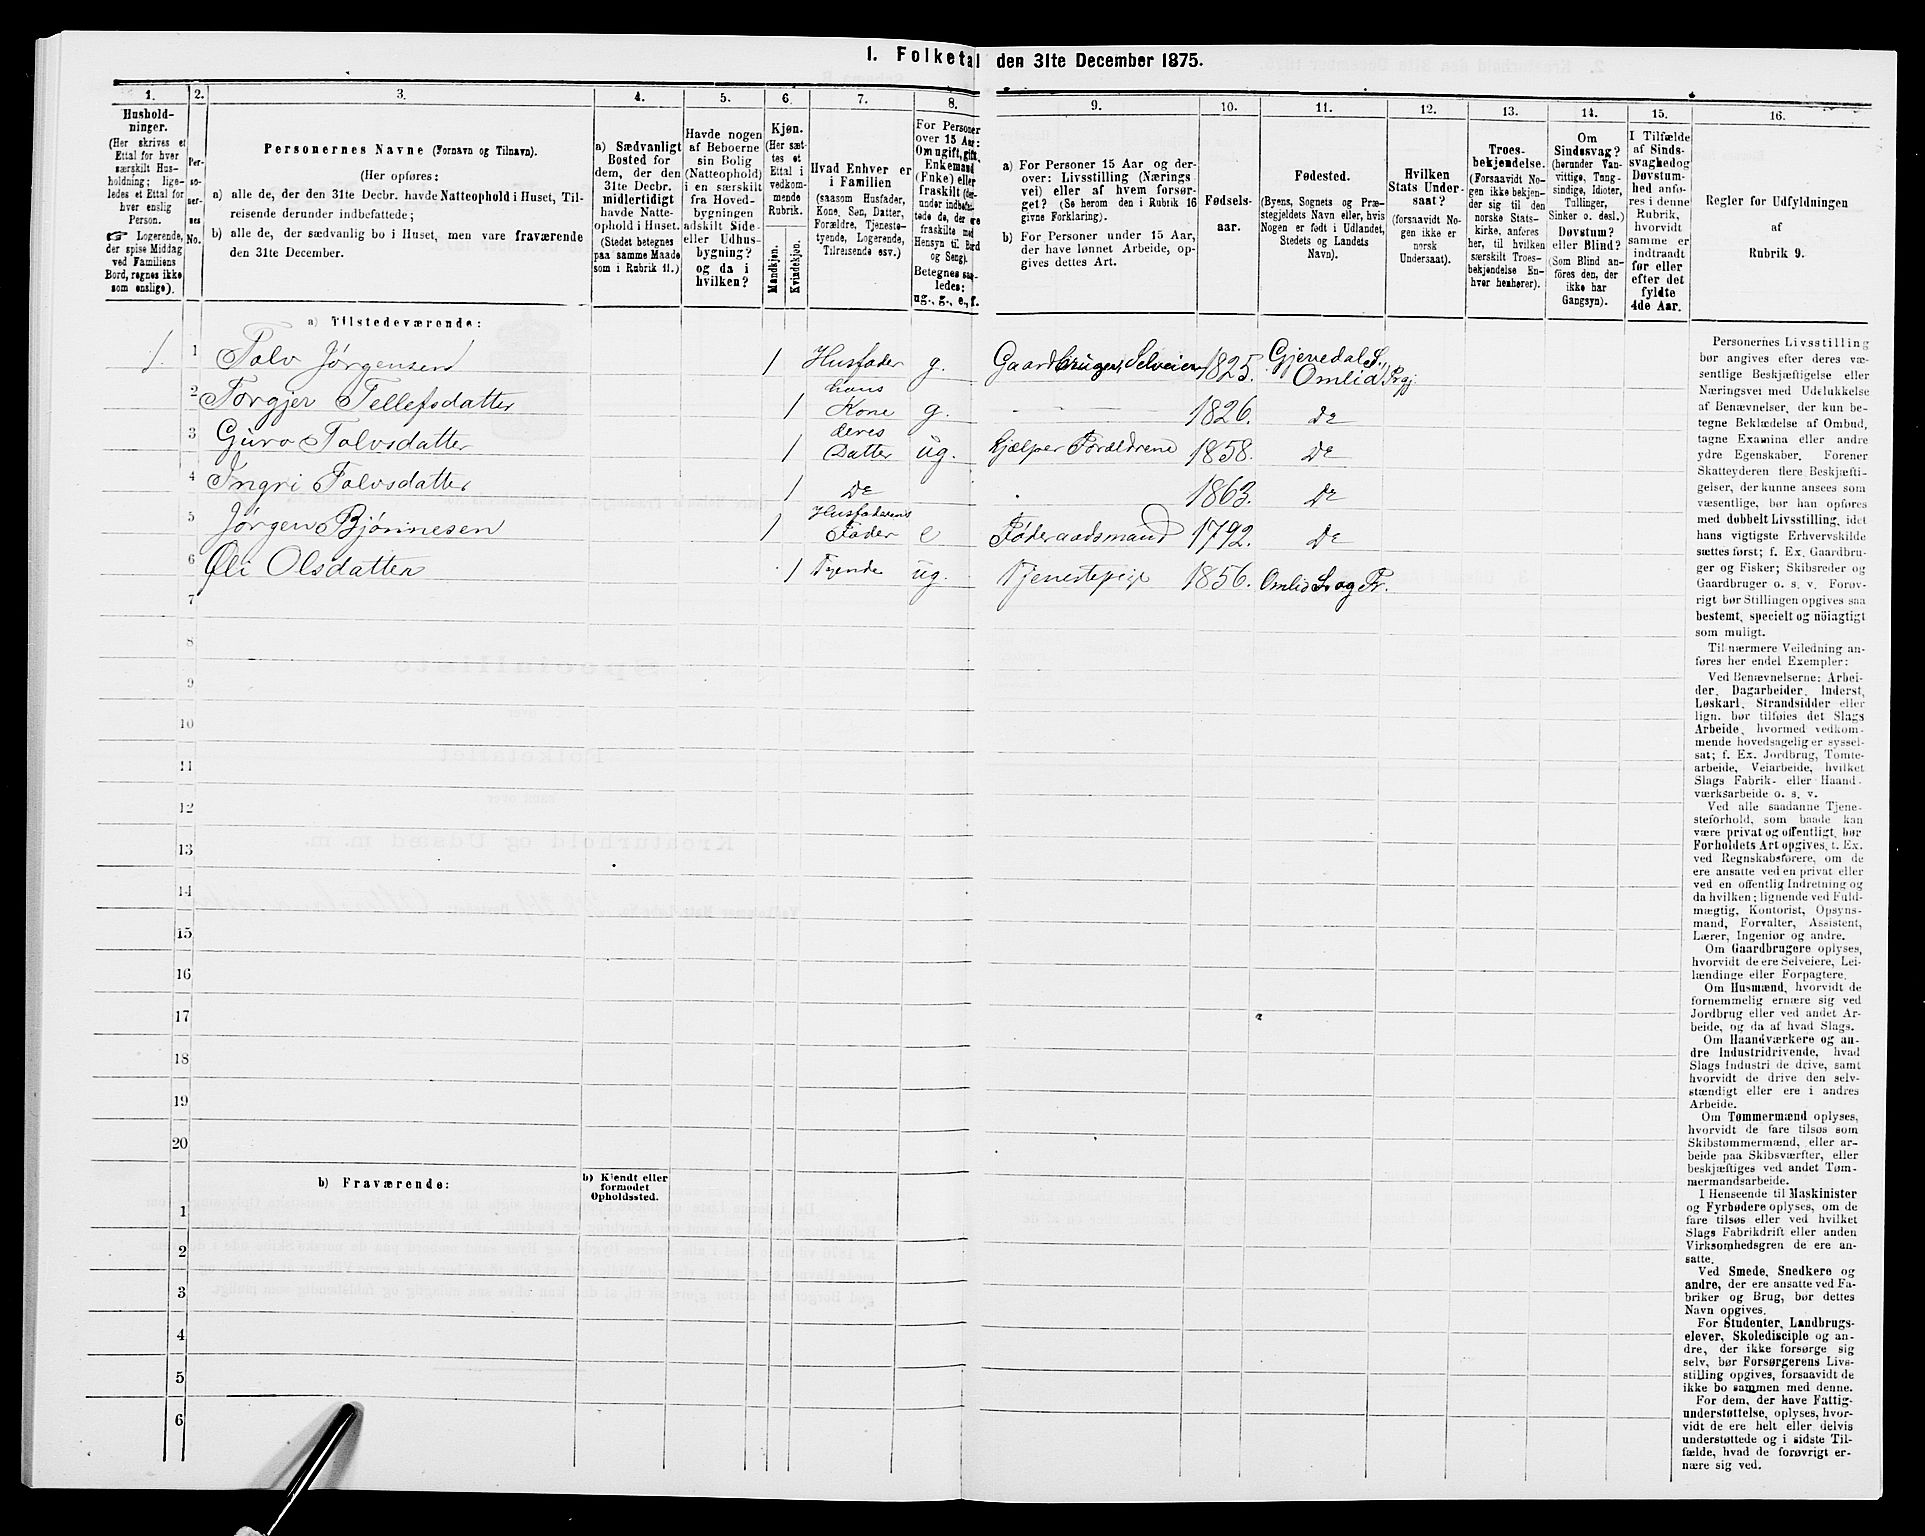 1. Folketal den 31te December 1875.
1. 2. 3. 4. 5. 6. 7. 8. 9. 10. 11. 12. 13. 14. 15. 16.
Hushold-
ninger.
(Her skrives et
Ettal for hver
særskilt Hus-
holdning; lige-
ledes et Ettal for
hver enslig
Person.
☞ Logerende,
der spise Middag
ved Familiens
Bord, regnes ikke
som enslige).
Per-
so-
ner-
nes
No.
Personernes Navne (Fornavn og Tilnavn).
(Her opføres:
a) alle de, der den 31te Decbr. havde Natteophold i Huset, Til-
reisende derunder indbefattede;
b) alle de, der sædvanlig bo i Huset, men vare fraværende
den 31te December.
a) Sædvanligt
Bosted for
dem, der den
31te Decbr.
midlertidigt
havde Natte-
ophold i Huset.
(Stedet betegnes
paa samme Maade
som i Rubrik 11.)
Havde nogen
af Beboerne
sin Bolig
(Natteophold)
i en særskilt
fra Hoved-
bygningen
adskilt Side-
eller Udhus-
bygning?
og da i
hvilken?
Kjøn.
(Her sæt-
tes et
Ettal i
vedkom-
mende
Rubrik.
Mandkjøn.
Kvindekjøn.
Hvad Enhver er
i Familien
(saasom Husfader,
Kone, Søn, Datter,
Forældre, Tjeneste-
tyende, Logerende,
Tilreisende osv.)
For Personer
over 15 Aar:
Om ugift, gift,
Enkemand
(Enke) eller
fraskilt (der-
under indbefat-
tede de, der ere
fraskilte med
Hensyn til Bord
og Seng).
Betegnes saa-
ledes:
ug., g., e., f.
a) For Personer 15 Aar og der-
over: Livsstilling (Nærings-
vei) eller af hvem forsør-
get? (Se herom den i Rubrik 16
givne Forklaring).
b) For Personer under 15 Aar,
der have lønnet Arbeide, op-
gives dettes Art.
Fødsels-
aar.
Fødested.
(Byens, Sognets og Præ-
stegjeldets Navn eller, hvis
Nogen er født i Udlandet,
Stedets og Landets
Navn).
Hvilken
Stats Under-
saat?
(forsaavidt No-
gen ikke er
norsk
Undersaat).
Troes-
bekjendelse.
(Forsaavidt No-
gen ikke bekjen-
der sig til den
norske Stats-
kirke, anføres
her, til hvilken
særskilt Troes-
bekjendelse En-
hver henhører).
Om
Sindssvag?
(herunder Van-
vittige, Tung-
sindige, Idioter,
Tullinger,
Sinker o. desl.)
Døvstum?
eller Blind?
(Som Blind an-
føres den, der
ikke har
Gangsyn).
I Tilfælde
af Sinds-
svaghed og
Døvstum-
hed anfø-
res i denne
Rubrik,
hvorvidt
samme er
indtraadt
før eller
efter det
fyldte
4de Aar.
Regler for Udfyldningen
af
Rubrik 9.
a) Tilstedeværende:
1 1 Talv Jørgensen 1 Husfader g. Gaardbruger, Selveier 1825. Gjevedal S. Omlid Prgj.
2 Torgjer Tellefsdatter 1 hans Kone g. 1826. De
3 Guro Talvsdatter 1 deres Datter ug. hjælper Forældrene 1858. De
4 Ingri Talvsdatter 1 De 1863. De
5 Jørgen Bjønnesen 1 Husfaderens Fader e Føderaadsmand 1792. De
6 Oli Olsdatter 1 Tyende ug. Tjenestepige 1856. Omlid S. og Pr.
7
8
9
10
11
12
13
14
15
16
17
18
19
20
b) Fraværende:
b) Kjendt eller
formodet
Opholdssted.
1
2
3
4
5
6
Personernes Livsstilling
bør angives efter deres væ-
sentlige Beskjæftigelse eller
Næringsvei med Udelukkelse
af Benævnelser, der kun be-
tegne Beklædelse af Ombud,
tagne Examina eller andre
ydre Egenskaber. Forener
Skatteyderen flere Beskjæfti-
gelser, der kunne ansees som
væsentlige, bør han opføres
med dobbelt Livsstilling, idet
hans vigtigste Erhvervskilde
sættes først; f. Ex. Gaardbru-
ger og Fisker; Skibsreder og
Gaardbruger o. s. v. Forøv-
rigt bør Stillingen opgives saa
bestemt, specielt og nöiagtigt
som muligt.
Til nærmere Veiledning an-
føres her endel Exempler:
Ved Benævnelserne: Arbei-
der, Dagarbeider, Inderst,
Løskarl, Strandsidder eller
lign. bør tilføies det Slags
Arbeide, hvormed vedkom-
mende hovedsagelig er syssel-
sat; f. Ex. Jordbrug, Tomte-
arbeide, Veiarbeide, hvilket
Slags Fabrik- eller Haand-
værksarbeide o. s. v.
Ved alle saadanne Tjene-
steforhold, som baade kan
være privat og offentligt, bør
Forholdets Art opgives, f. Ex.
ved Regnskabsførere, om de
ere ansatte ved en privat eller
ved en offentlig Indretning og
da hvilken; lignende ved Fuld-
mægtig, Kontorist, Opsyns-
mand, Forvalter, Assistent,
Lærer, Ingeniør og andre.
Om Gaardbrugere oplyses,
hvorvidt de ere Selveiere, Lei-
lændinge eller Forpagtere.
Om Husmænd, hvorvidt de
fornemmelig ernære sig ved
Jordbrug eller ved andet Ar-
beide, og da af hvad Slags.
Om Haandværkere og an-
dre Industridrivende, hvad
Slags Industri de drive, samt
hvorvidt de drive den selv-
stændigt eller ere i andres
Arbeide.
Om Tømmermænd oplyses,
hvorvidt de fare tilsøs som
Skibstømmermænd, eller ar-
beide paa Skibsværfter, eller
beskjæftiges ved andet Tøm-
mermandsarbeide.
I Henseende til Maskinister
og Fyrbødere oplyses, om de
fare tilsøs eller ved hvilket
Slags Fabrikdrift eller anden
Virksomhedsgren de ere an-
satte.
Ved Smede, Snedkere og
andre, der ere ansatte ved Fa-
briker og Brug, bør dettes
Navn opgives.
For Studenter, Landbrugs-
elever, Skoledisciple og an-
dre, der ikke forsørge sig
selv, bør Forsørgerens Livs-
stilling opgives, forsaavidt de
ikke bo sammen med denne.
For dem, der have Fattig-
understøttelse, oplyses, hvor-
vidt de ere helt eller delvis
understøttede og i sidste Til-
fælde, hvad de forøvrigt er-
nære sig ved.